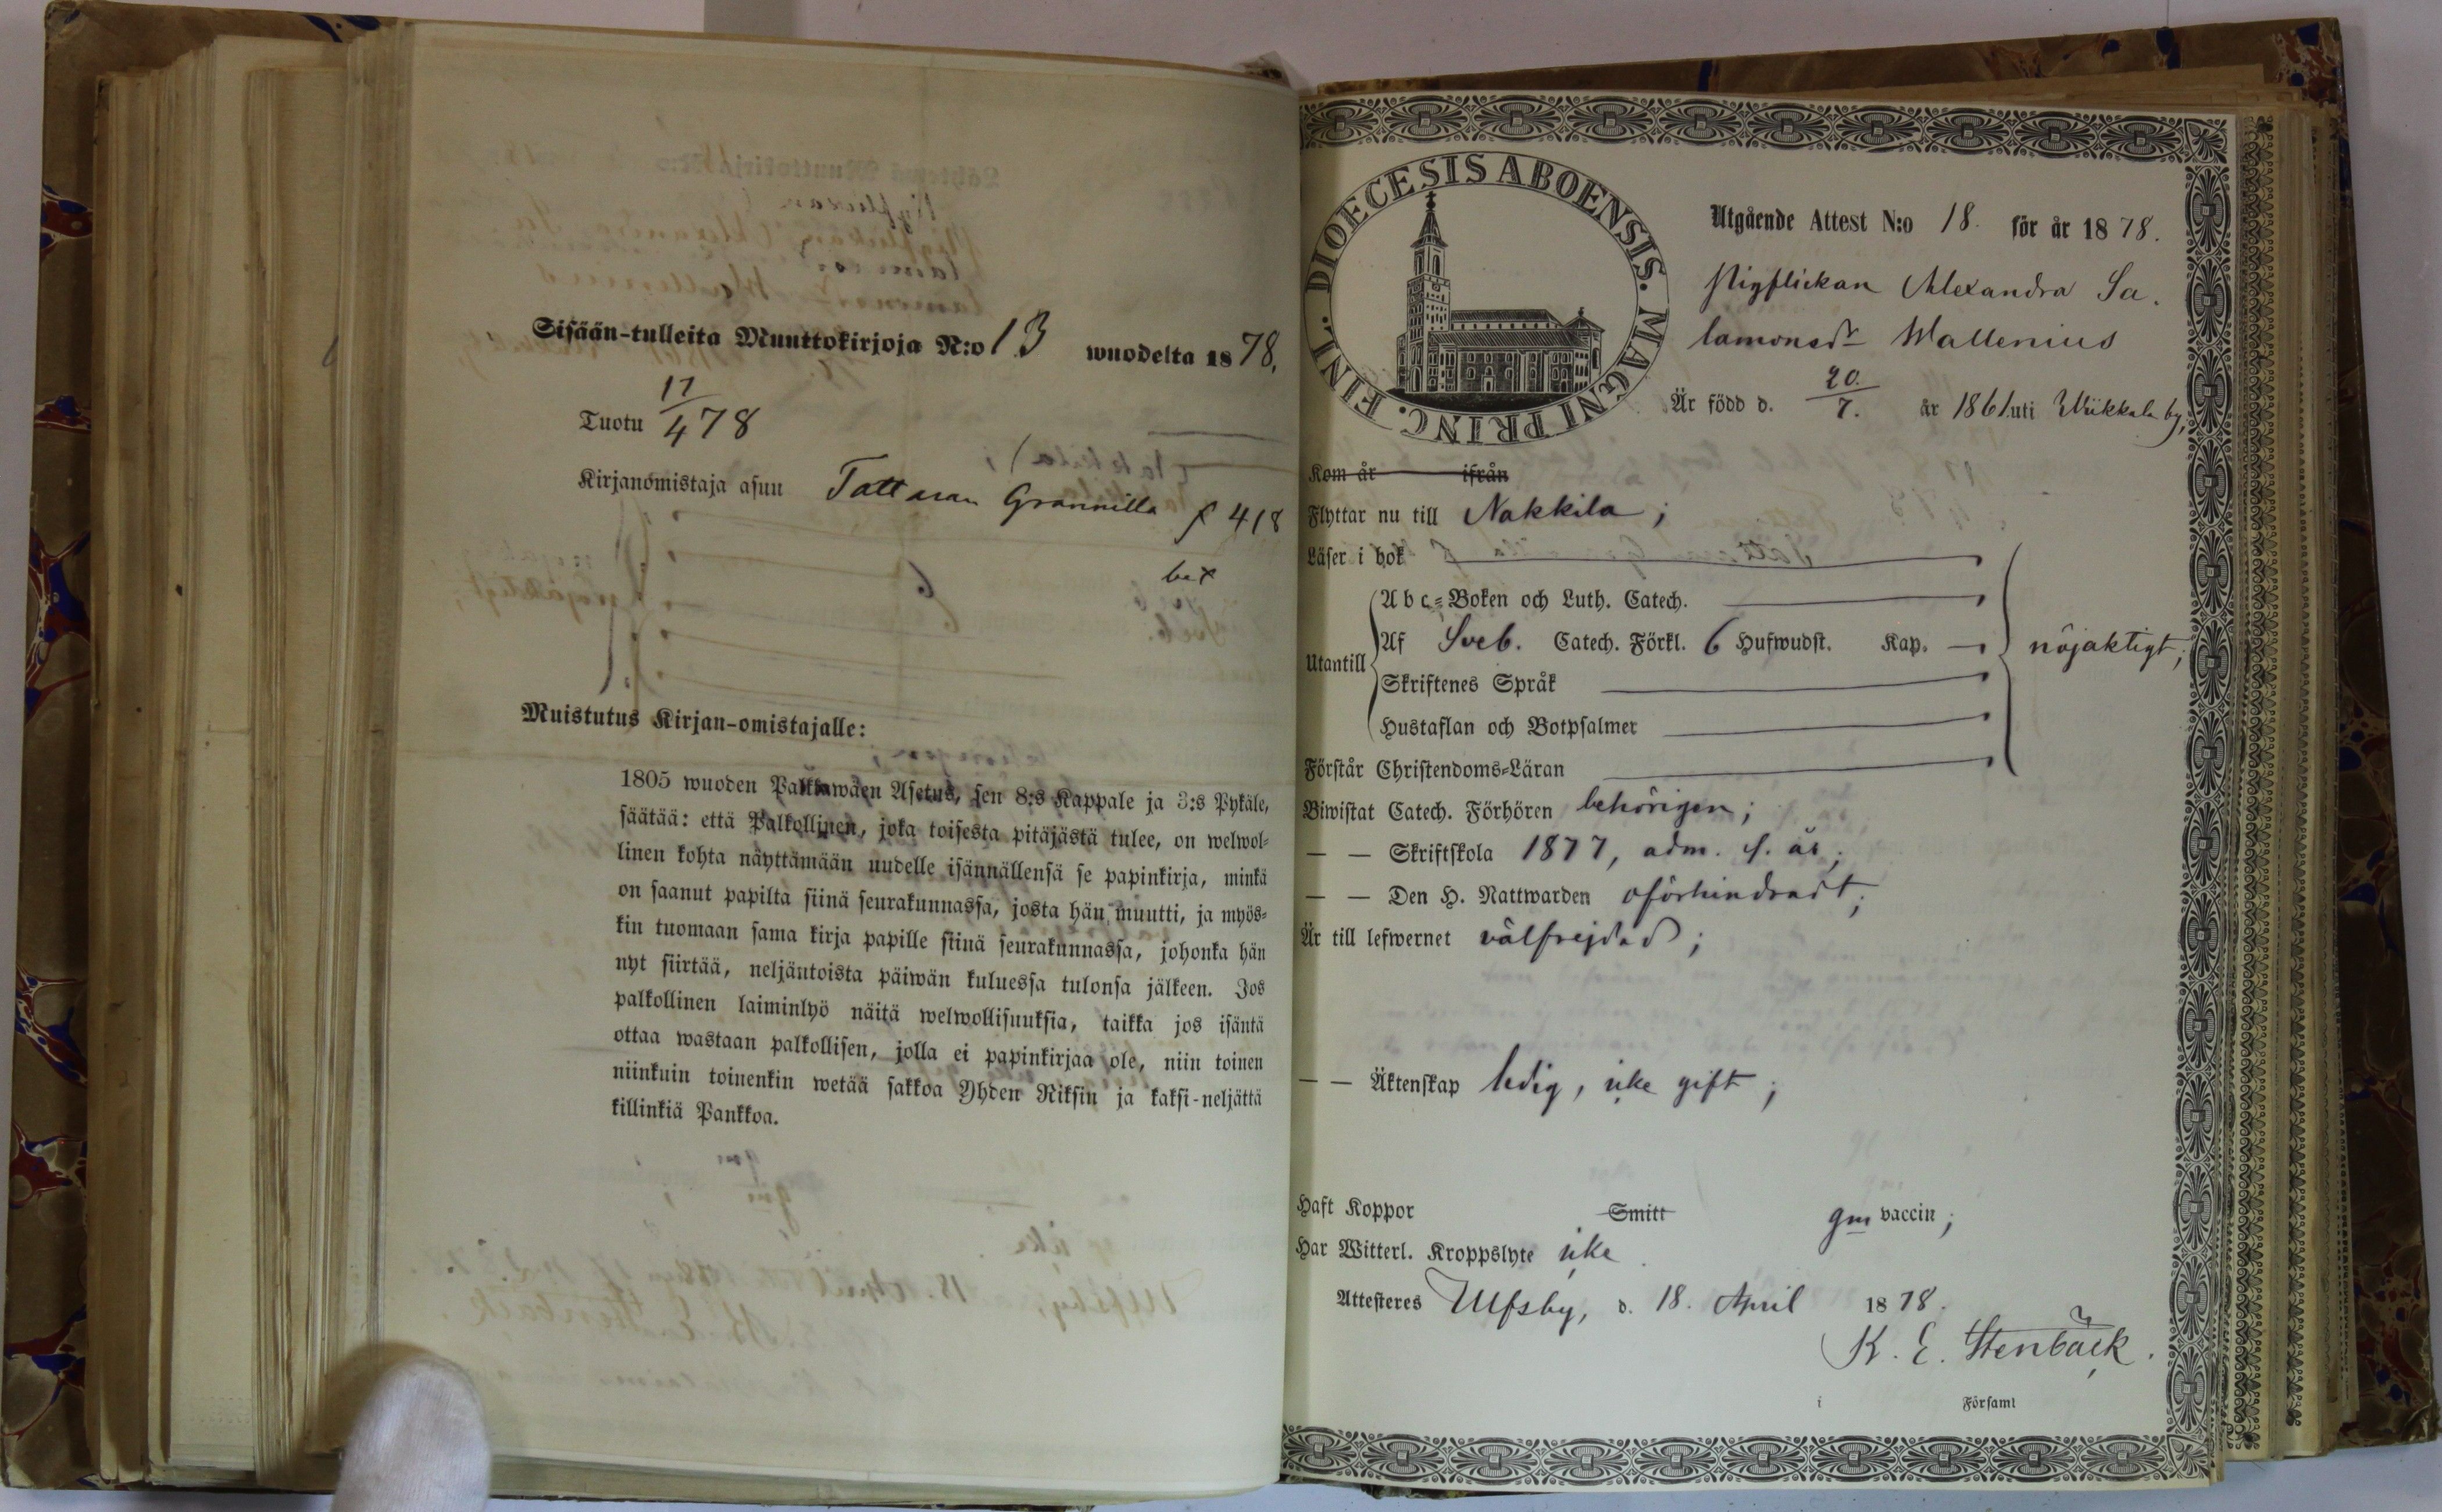 Sisään-tulleita Muuttokirjoja N:o 13 wuodelta 1878.
Tuotu 17/4 78
Kirjanomistaja asuu Tattaran Grannilla f 418
bet
Muistutus Kirjan-omistajalle:
1805 wuoden Palkkawäen Asetus, sen 8:s Kappale ja 3:s Pykäle,
säätää: että Palkollinen, joka toisesta pitäjästä tulee, on welwol-
linen kohta näyttämään uudelle isännällensä se papinkirja, minkä
on saanut papilta siinä seurakunnassa, josta hän muutti, ja myös-
kin tuomaan sama kirja papille siinä seurakunnassa, johonka hän
nyt siirtää, neljäntoista päiwän kuluessa tulonsa jälkeen. Jos
palkollinen laiminlyö näitä welwollisuuksia, taikka jos isäntä
ottaa wastaan palkollisen, jolla ei papinkirjaa ole, niin toinen
niinkuin toinenkin wetää sakkoa Yhden Riksin ja kaksi-neljättä
killinkiä Pankkoa.
DIOECESIS ABOENSIS. MAGNI PRINC. FINL.
Utgående Attest N:o 18. för år 1878.
Pigflickan Alexandra Sa.
lamonsdr Wallenius
Är född d. 20./7. år 1861. uti Wiikkala by,
Kom år ifrån
Flyttar nu till Nakkila;
Läser i bok
Abc-Boken och Luth. Catech.
Utantill Af Sveb. Catech. Förkl. 6 Hufwudst. Kap. nöjaktigt;
Skriftenes Språk
Hustaflan och Botpsalmer
Förstår Christendoms-Läran
Biwistat Catech. Förhören behörigen;
— — Skriftskola 1877, adm. s. år;
— — Den H. Nattwarden oförhindradt;
Är till lefwernet välfrejdad;
— — Äktenskap ledig, icke gift;
Haft Koppor Smitt gm vaccin;
Har Witterl. Kroppslyte icke.
Attesteres Ulfsby, d. 18. April 1878.
K. E. Stenbäck.
i Församl